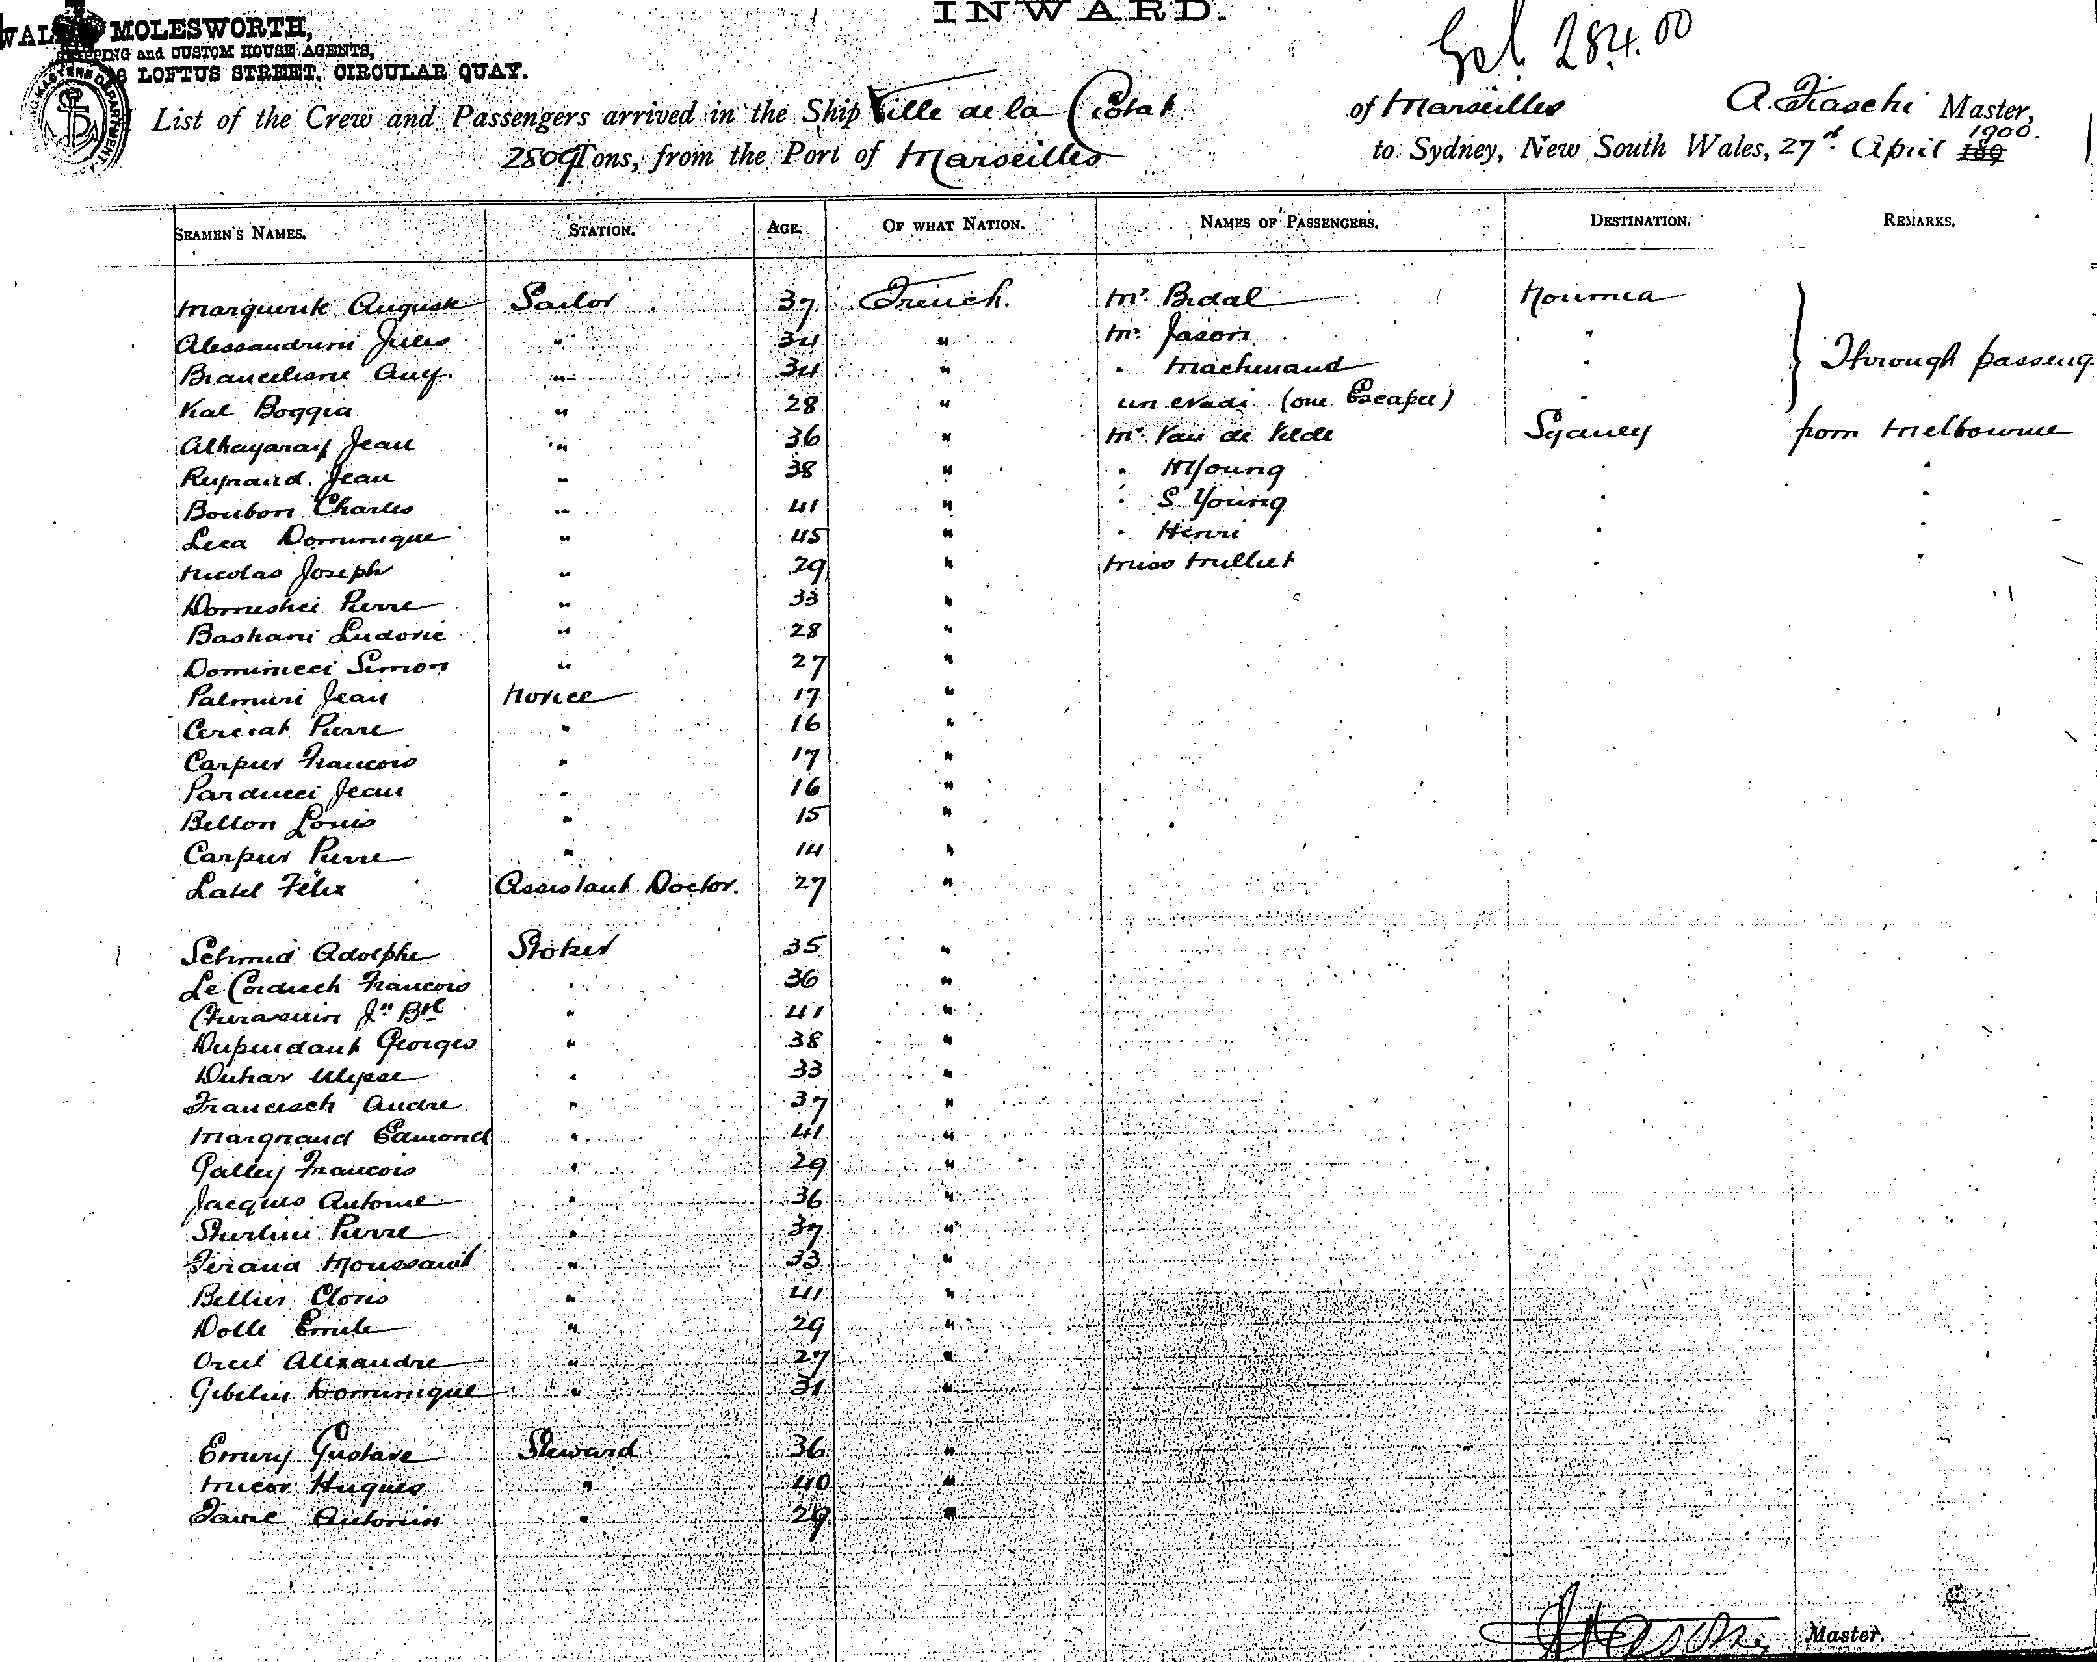 INWARD.
MOLESWORTH,
and CUSTOM HOUSE AGENTS,
LOFTUS STREET, CIRCULAR QUAY.
284.00
List of the Crew and Passengers arrived in the Ship Ville de la Ciotat of Marseilles A. Fiaschi Master,
2809 Tons, from the Port of Marseilles to Sydney, New South Wales, 27 April 189 1900.
SEAMEN'S NAMES. STATION. AGE. OF WHAT NATION. NAMES OF PASSENGERS. DESTINATION. REMARKS.
Auguste Sailor 37 French. Mr. Bidal Noumea
Alessandrini Jules " 34 " Mr. Jason "
34 " " Through passeng
Kal Boggia " 28 " un evadé (one Escapee) "
Jean " 36 " Mr. Van de Velde Sydney from Melbourne
Reynaud Jean " 38 " " Young " "
Boubon Charles " 41 " " S. Young " "
Leca Dominique " 45 " " Henri " "
Nicolas Joseph " 29 " Miss " "
Pierre " 33 "
Bashani Ludovic " 28 "
Dominicci Simon " 27 "
Palmieri Jean Novice 17 "
Pierre " 16 "
Francois " 17 "
Parducci Jean " 16 "
Bellon Louis " 15 "
Pierre " 14 "
Félix Assistant Doctor. 27 "
Schmid Adolphe Stoker 35 "
Le Francois " 36 "
Jn Bte " 41 "
Georges " 38 "
Ulysse " 33 "
Andre " 37 "
Margnaud Edmond " 41 "
Galley Francois " 29 "
Jacques Antoine " 36 "
Pierre " 37 "
" 33 "
Bellier Clovis " 41 "
Dolle Emile " 29 "
Alexandre " 27 "
Gibelin Dominique " 31 "
Gustave Steward 36 "
Hugues " 40 "
Favre Antonin " 29 "
Master.